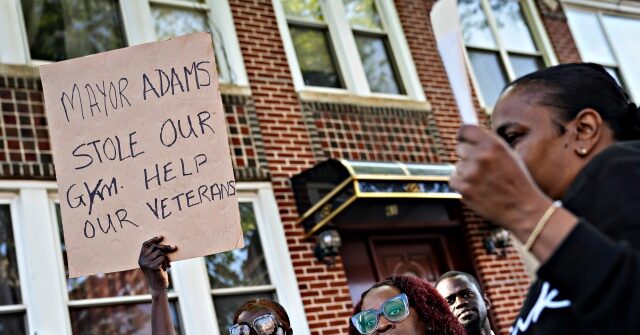 MAYOR ADAMS
STOLE OUR
GYM. HELP
OUR VETERANS